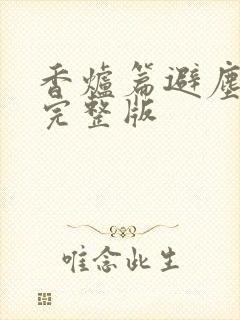 香爐篇避塵
完整版
唯念此生